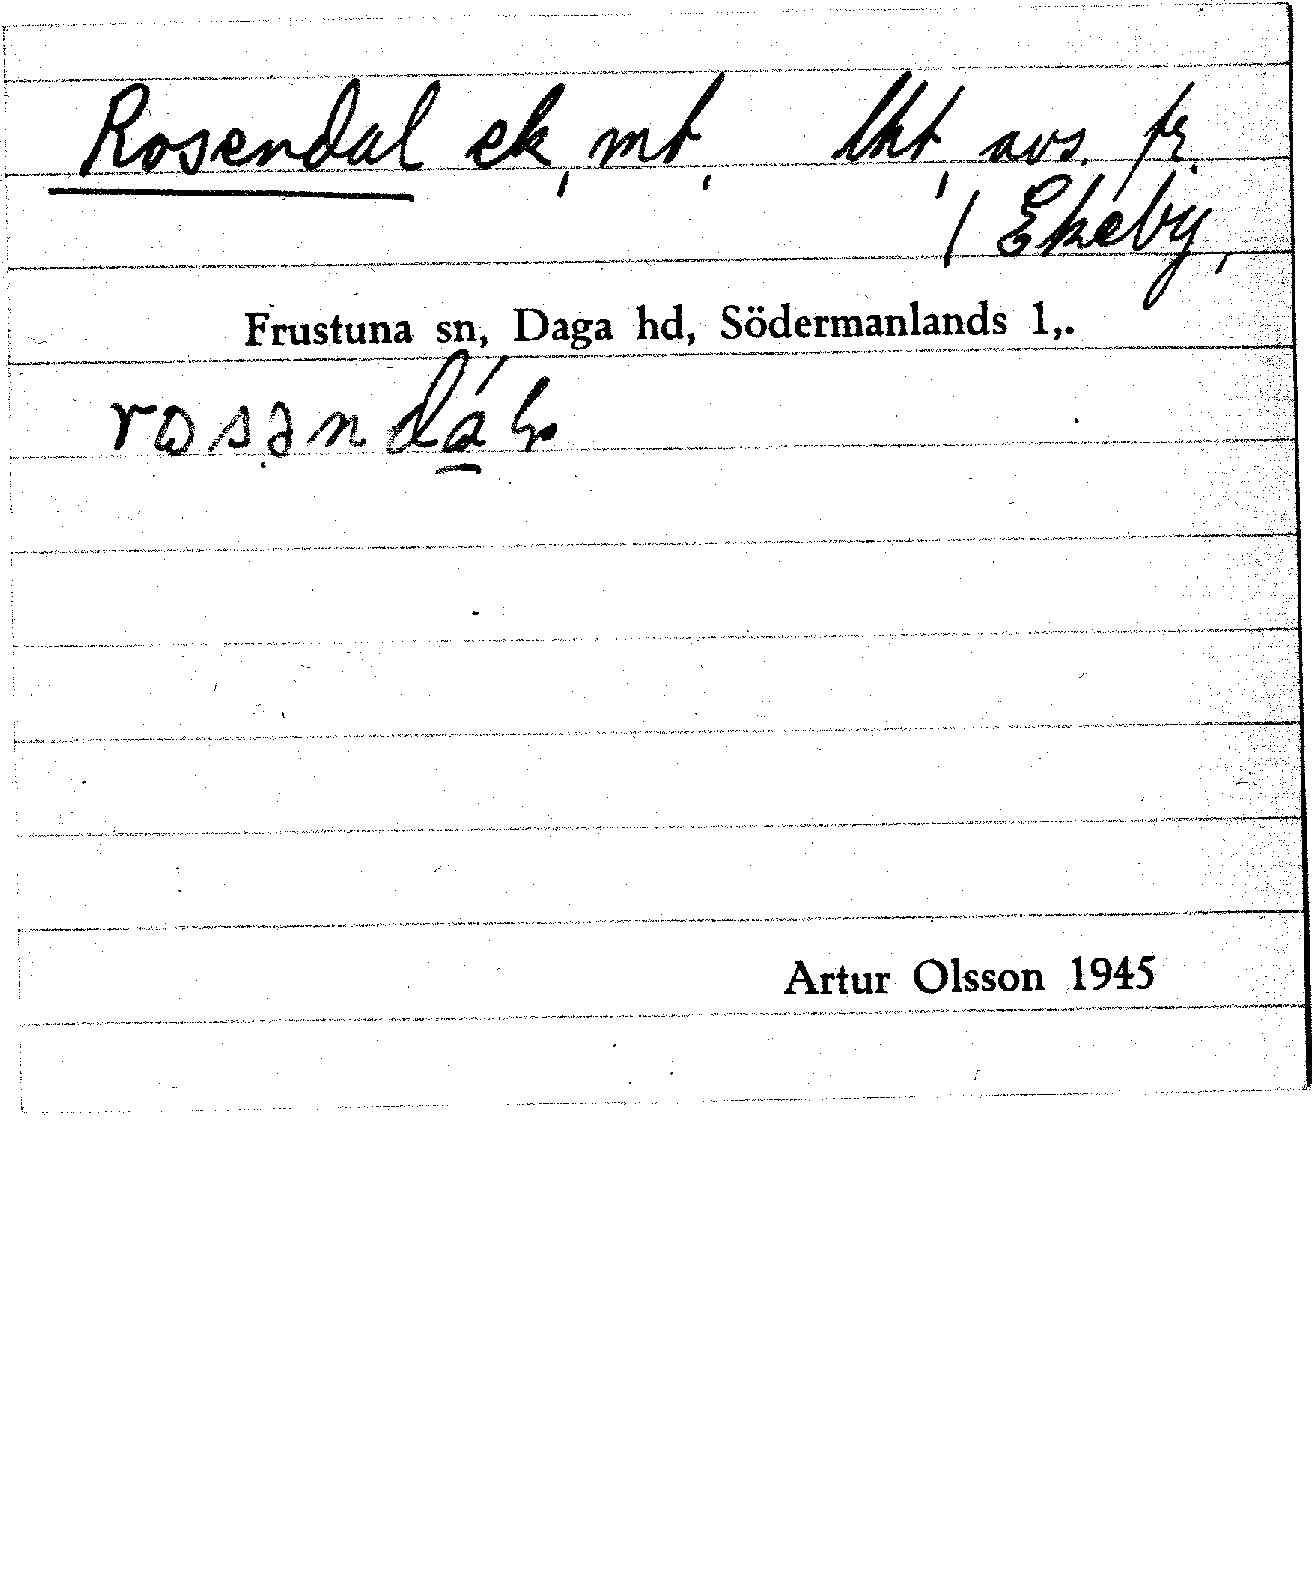 Rosendal ek, mt, lht, avs. fr.
/ Ekeby,
Frustuna sn, Daga hd, Södermanlands l,.
Artur Olsson 1945